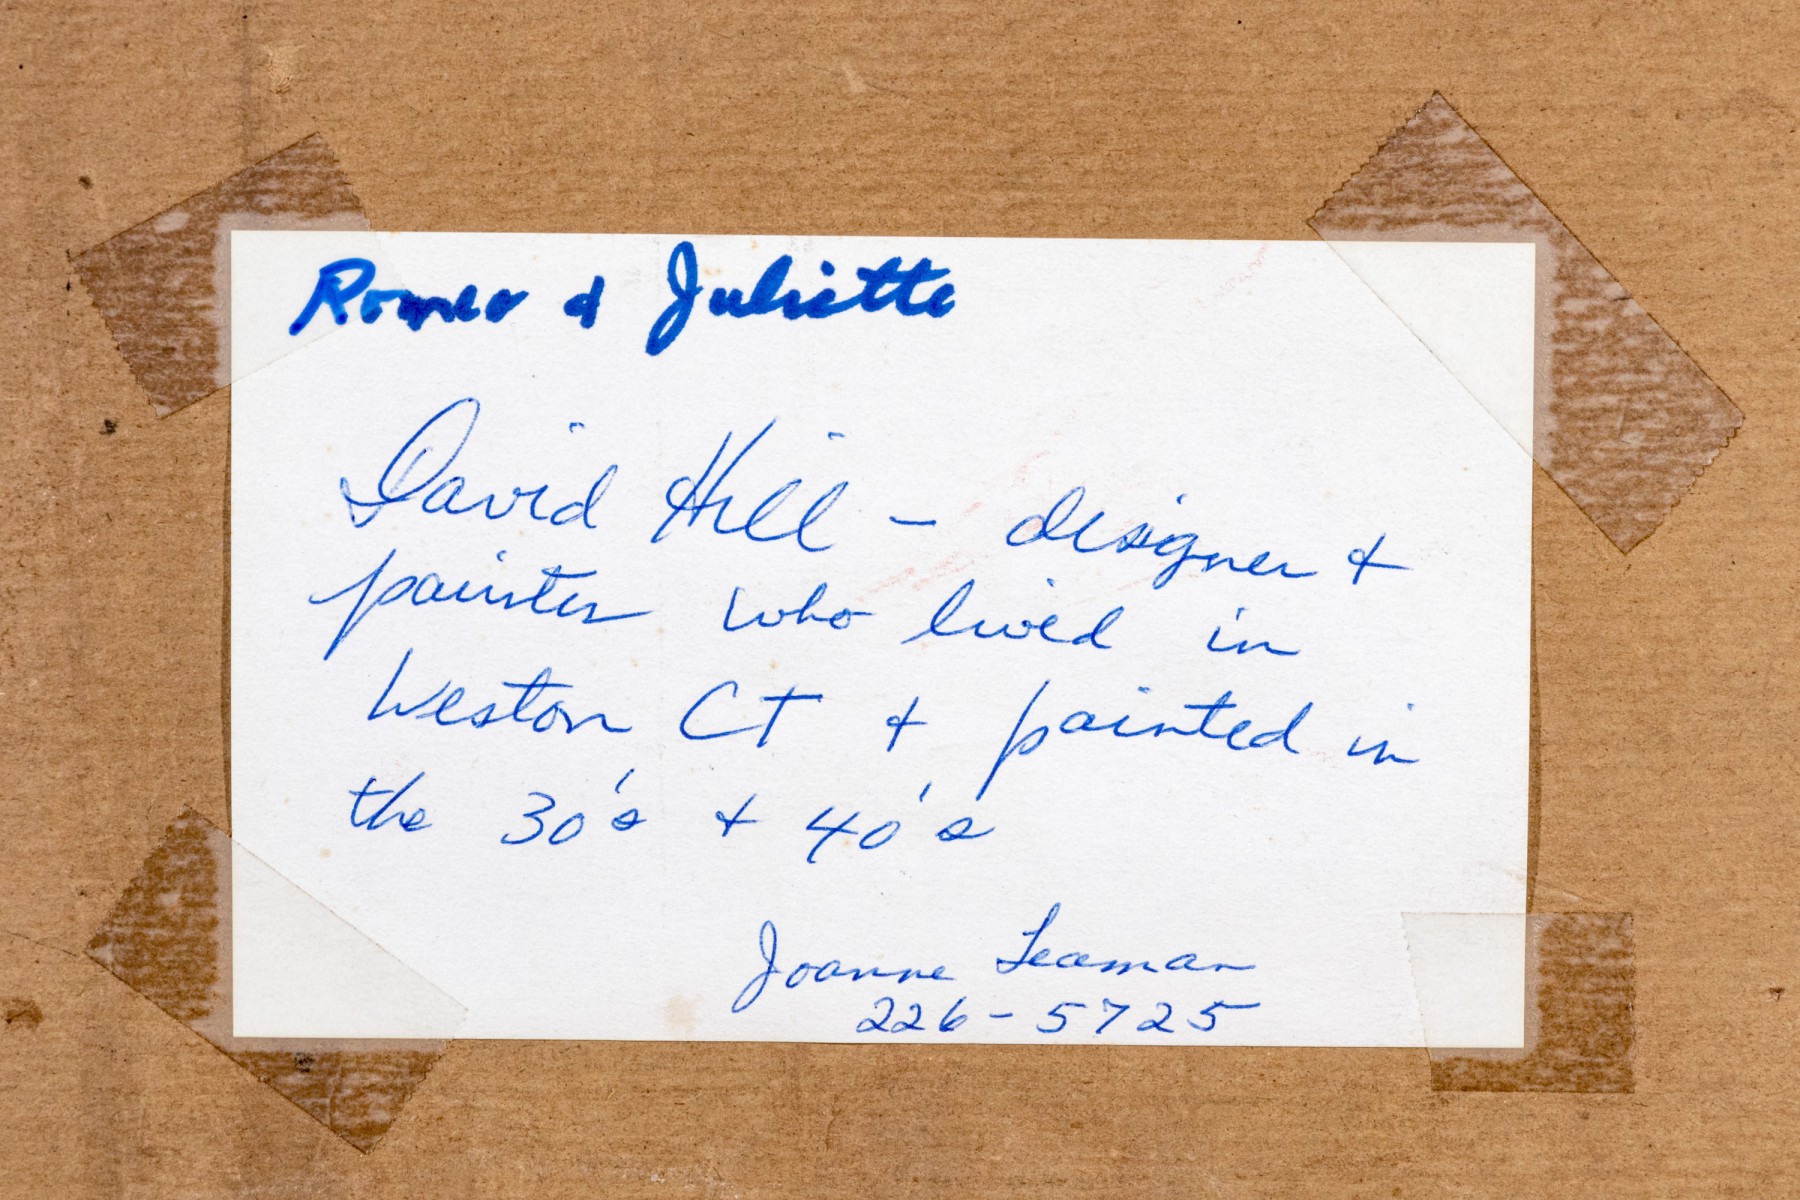 Romeo & Juliette
David Hill – designer &
painter who lived in
Weston CT & painted in
the 30's & 40's
Joanne Leaman
226-5725